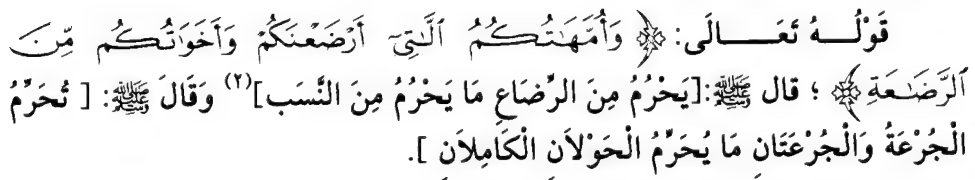 قَوْلُـــهُ تَعَـــــالَى: ﴿ وَأُمَّهَٰتُكُمُ ٱلَّٰتِىٓ أَرْضَعْنَكُمْ وَأَخَوَٰتُكُم مِّنَ
ٱلرَّضَٰعَةِ ﴾ ؛ قال ﷺ:[يَحْرُمُ مِنَ الرِّضَاعِ مَا يَحْرُمُ مِنَ النَّسَب](٢) وَقَالَ ﷺ: [ تُحَرِّمُ
الْجُرْعَةُ وَالْجُرْعَتَانِ مَا يُحَرِّمُ الْحَوْلاَنِ الْكَامِلاَنِ ].